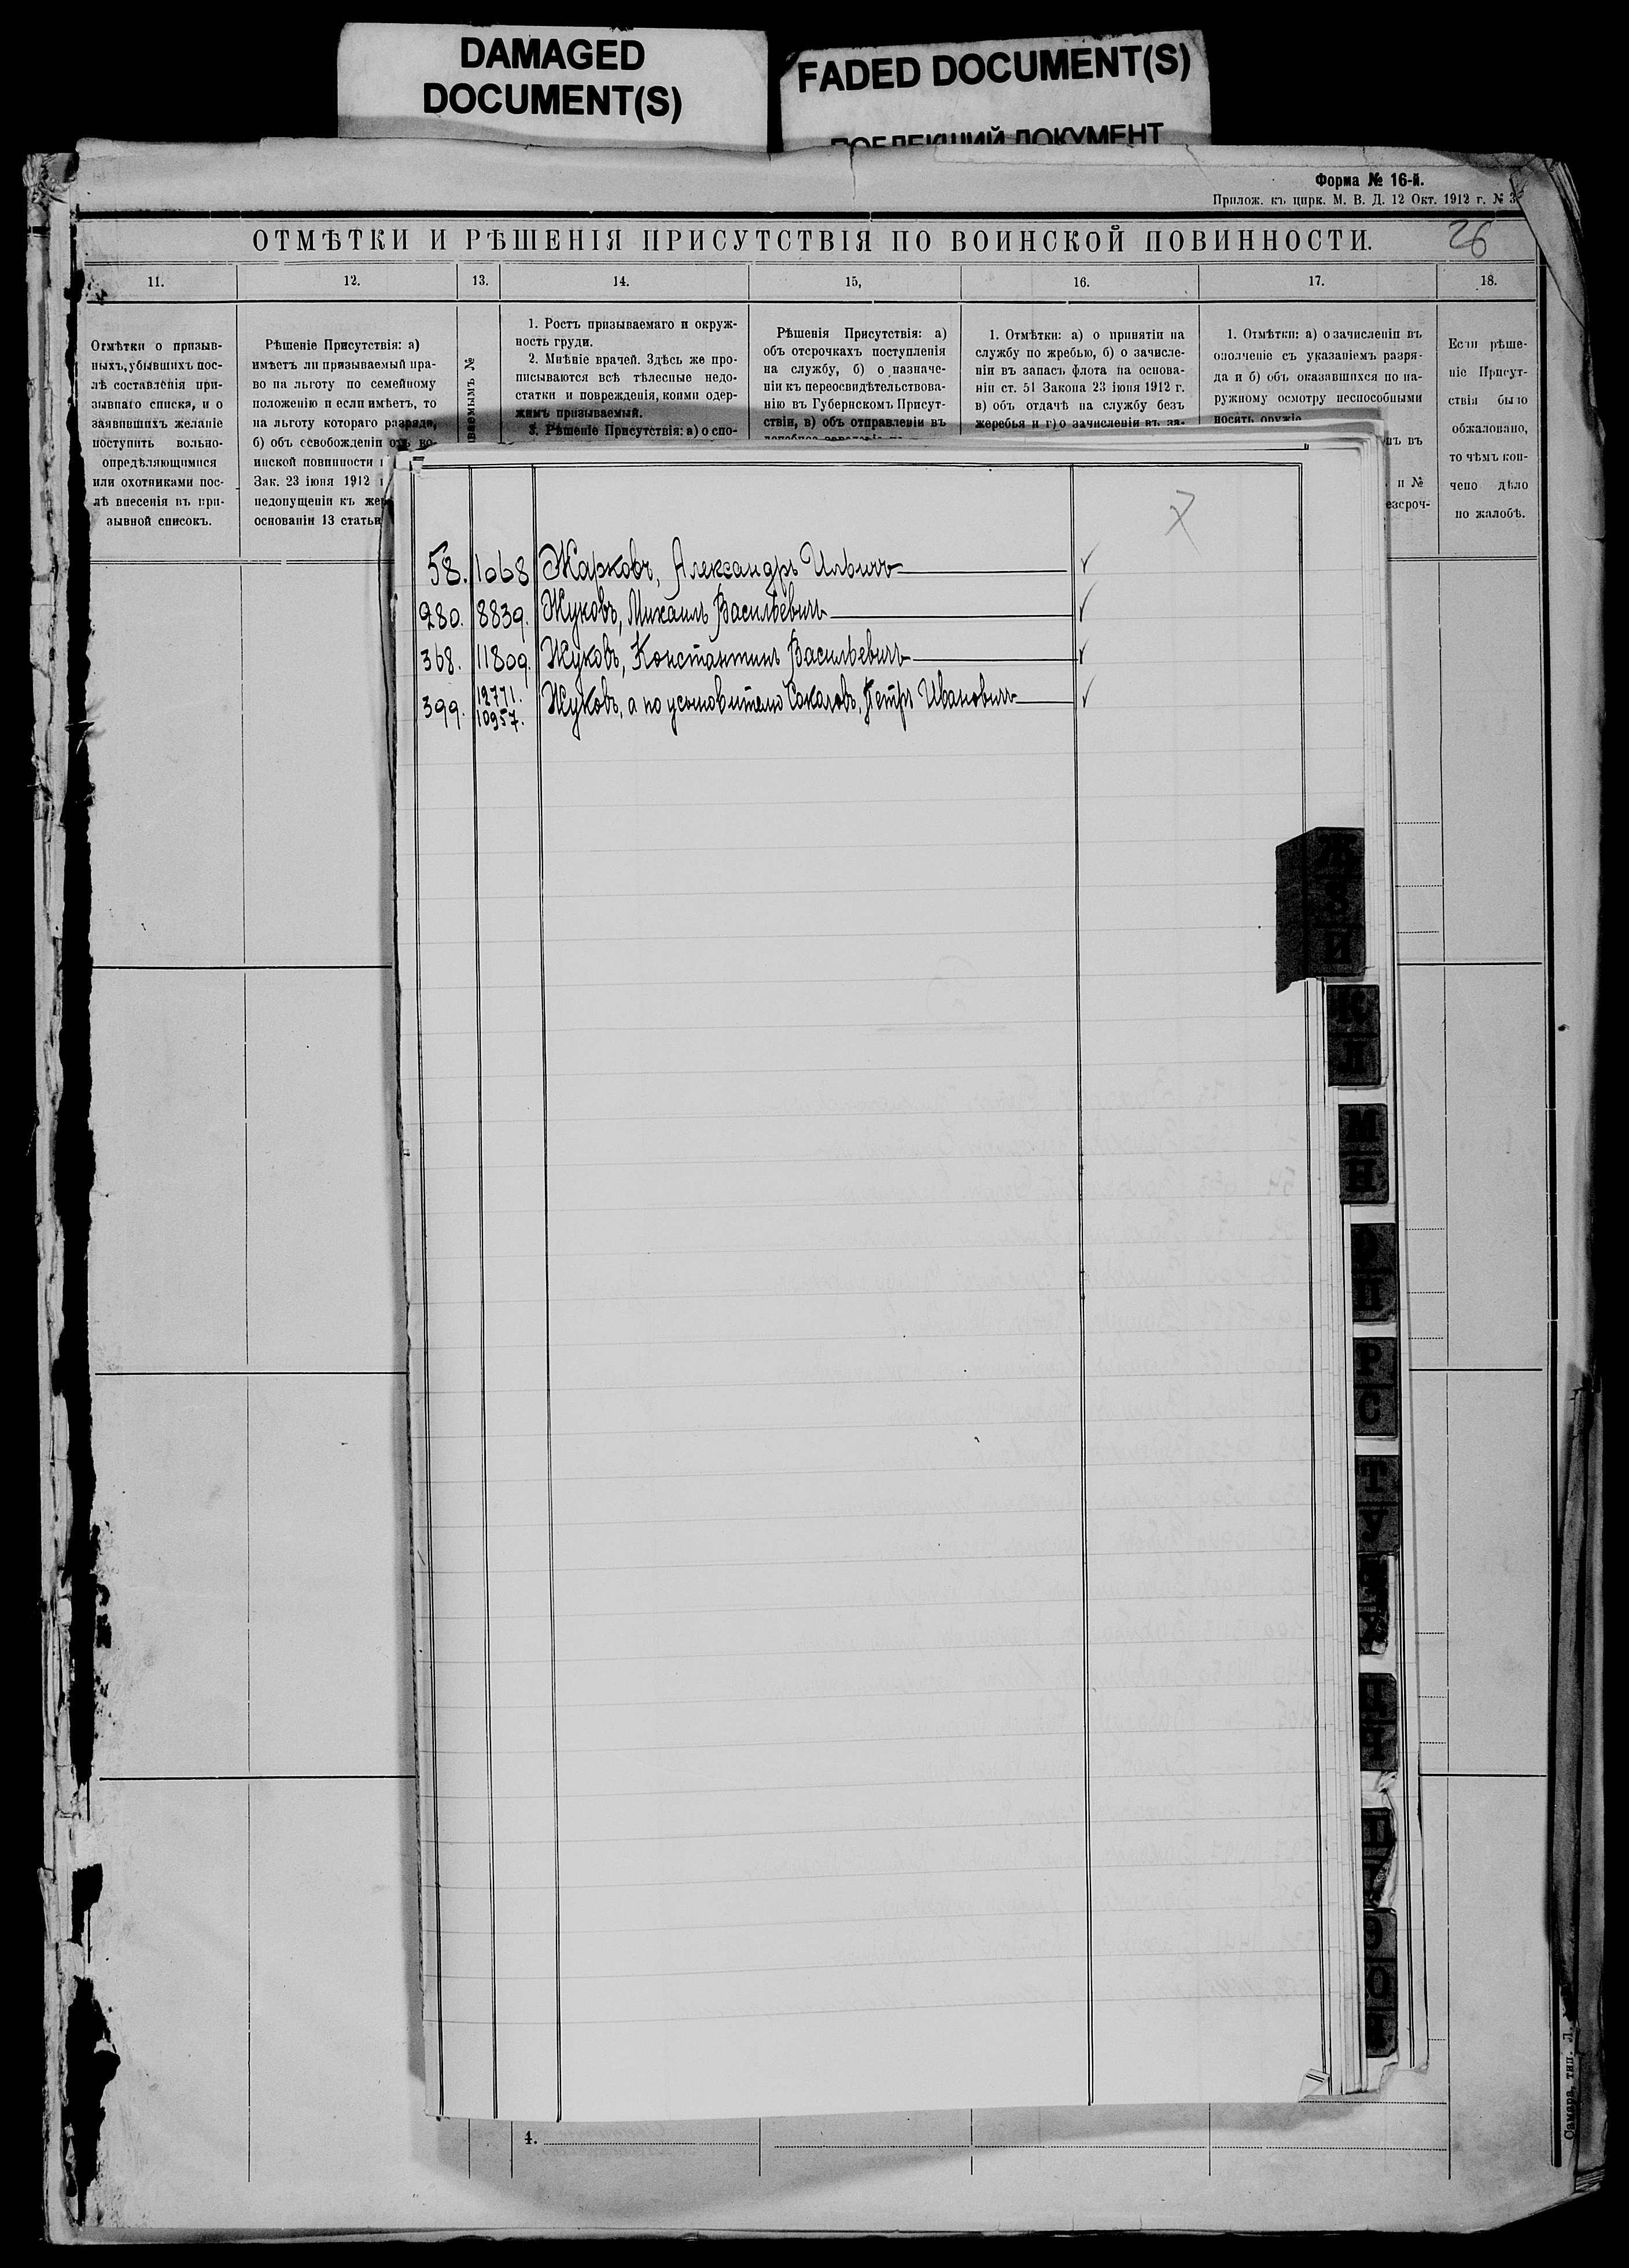 DAMAGED
DOCUMENT(S)
FADED DOCUMENT(S)
ДОКУМЕНТ
Форма № 16-й.
Прилож. къ цирк. М. В. Д. 12 Окт. 1912 г. №
ОТМѢТКИ И РѢШЕНІЯ ПРИСУТСТВІЯ ПО ВОИНСКОЙ ПОВИННОСТИ.
26
11.
12.
13.
14.
15,
16.
17.
18.
Отмѣтки о призыв-
ныхъ, убывшихъ пос-
лѣ составленія при-
зывнаго списка, и о
заявившихъ желаніе
поступить вольно-
опредѣляющимися
или охотниками пос-
лѣ внесенія въ при-
зывной списокъ.
Рѣшеніе Присутствія: а)
имѣетъ ли призываемый пра-
во на льготу по семейному
положенію и если имѣетъ, то
на льготу котораго разряда,
б) объ освобожденіи отъ во-
инской повинности
Зак. 23 іюня 1912
недопущеніи къ
основаніи 13 статьи
№
1. Ростъ призываемаго и окруж-
ность груди.
2. Мнѣніе врачей. Здѣсь же про-
писываются всѣ тѣлесные недо-
статки и поврежденія, коими одер-
жимъ призываемый.
3. Рѣшеніе Присутствія: а) о спо-
Рѣшенія Присутствія: а)
объ отсрочкахъ поступленія
на службу, б) о назначе-
ніи къ переосвидѣтельствова-
нію въ Губернскомъ Присут-
ствіи, в) объ отправленіи въ
1. Отмѣтки: а) о принятіи на
службу по жребью, б) о зачисле-
ніи въ запасъ флота на основа-
ніи ст. 51 Закона 23 іюня 1912 г.
в) объ отдачѣ на службу безъ
жеребья и г) о зачисленіи въ за-
1. Отмѣтки: а) о зачисленіи въ
ополченіе съ указаніемъ разря-
да и б) объ оказавшихся по на-
ружному осмотру неспособными
носить оружіе
въ
и №
Если рѣше-
ніе Присут-
ствія было
обжаловано,
то чѣмъ кон-
чено дѣло
по жалобѣ.
58. 1068 Жарковъ, Александръ Ильичъ
280. 8839. Жуковъ, Михаилъ Васильевичъ
368. 11809. Жуковъ, Константинъ Васильевичъ
399. 12771. 10957. Жуковъ, а по усыновителю Сокаловъ, Петръ Ивановичъ
К
М
Р
С
Т
У
О
4.
Самара, тип. Л.